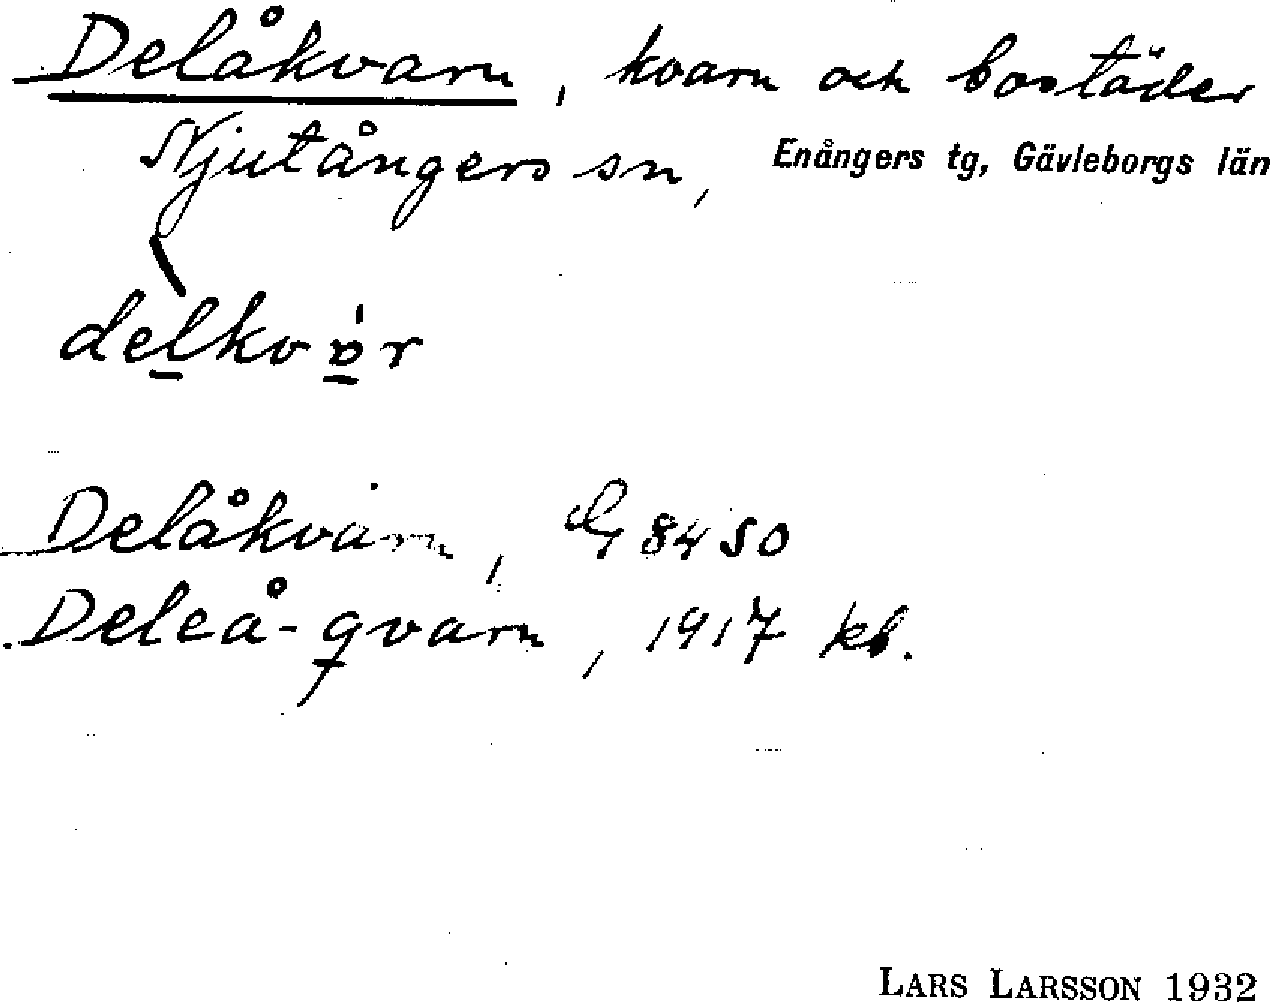 Delåkvarn, kvarn och bostäder
Njutångers sn, Enångers tg, Gävleborgs län
delkvɒr
Delåkvarn, G 84 SO
Deleå-qvarn, 1917 kb.
LARS LARSSON 1932